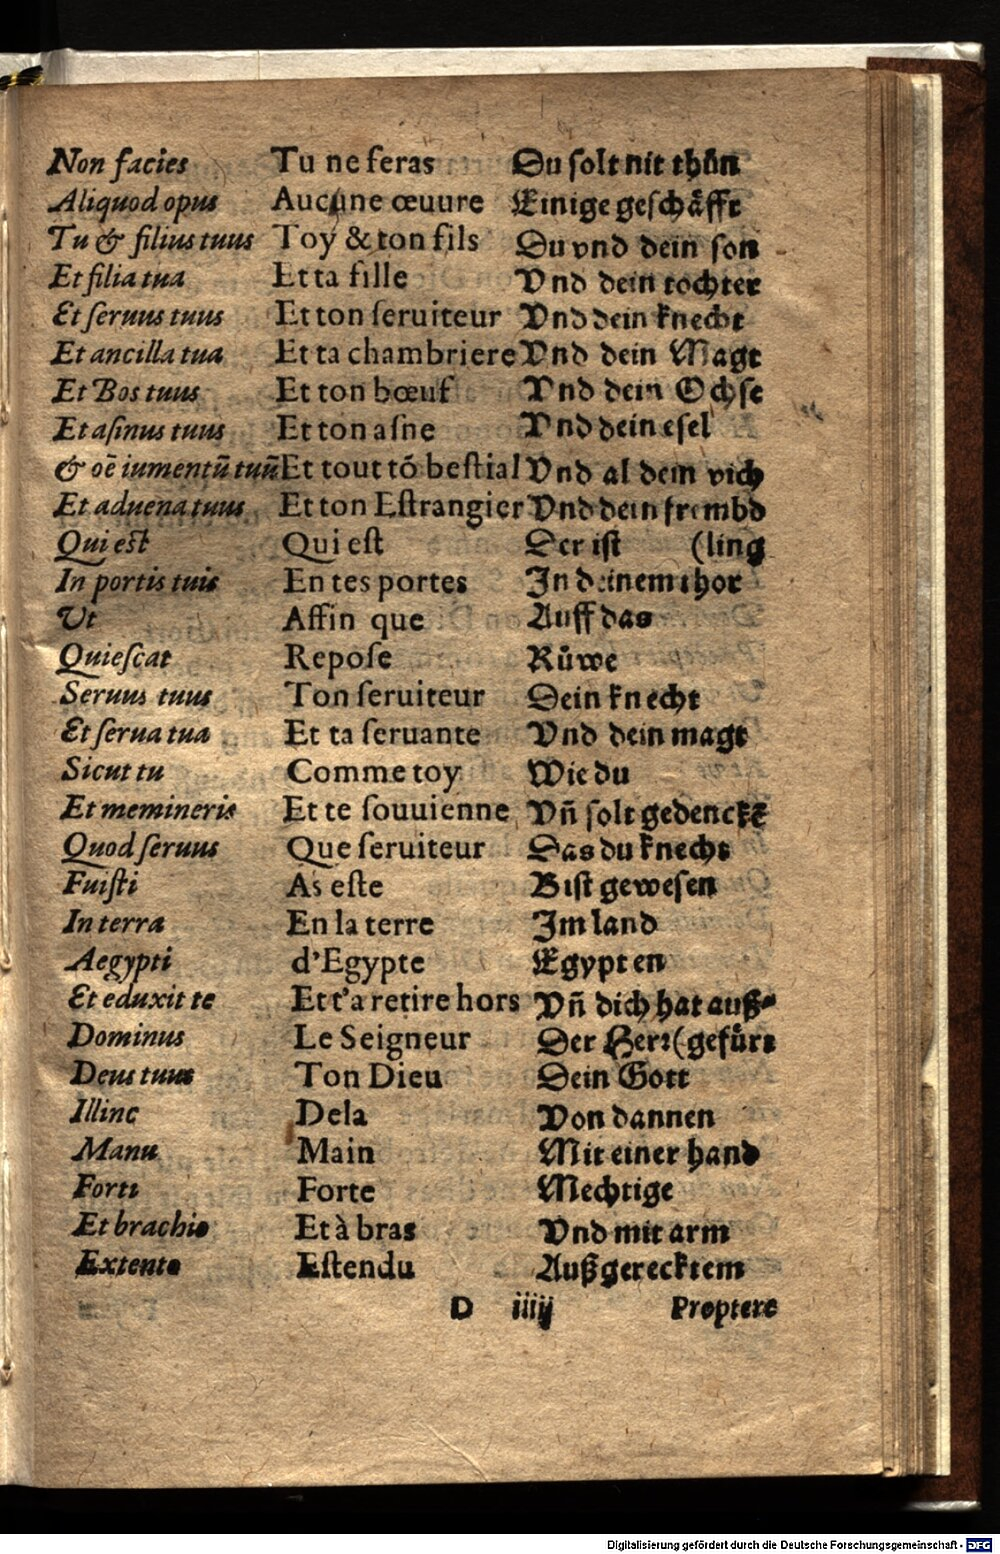 Non facies Tu ne feras Du solt nit thůn
Aliquod opus Aucune œuure Einige geschäfft
Tu & filius tuus Toy & ton fils Du vnd dein son
Et filia tua Et ta fille Vnd dein tochter
Et seruus tuus Et ton seruiteur Vnd dein knecht
Et ancilla tua Et ta chambriere Vnd dein Magt
Et Bos tuus Et ton bœuf Vnd dein Ochse
Et asinus tuus Et ton asne Vnd dein esel
& oē iumentū tuū Et tout tō bestial Vnd al dein vich
Et aduena tuus Et ton Estrangier Vnd dein frembd
Qui est Qui est Der ist (ling
In portis tuis En tes portes In deinem thor
Vt Affin que Auff das
Quiescat Repose Růwe
Seruus tuus Ton seruiteur Dein knecht
Et serua tua Et ta seruante Vnd dein magt
Sicut tu Comme toy Wie du
Et memineris Et te souuienne Vñ solt gedenckē
Quod seruus Que seruiteur Das du knecht
Fuisti As este Bist gewesen
In terra En la terre Im land
Aegypti d'Egypte Egypten
Et eduxit te Et t'a retire hors Vñ dich hat auß⸗
Dominus Le Seigneur Der Herr (gefürt
Deus tuus Ton Dieu Dein Gott
Illinc Dela Von dannen
Manu Main Mit einer hand
Forti Forte Mechtige
Et brachio Et à bras Vnd mit arm
Extento Estendu Außgerecktem
D iiij Proptere
Digitalisierung gefördert durch die Deutsche Forschungsgemeinschaft - DFG